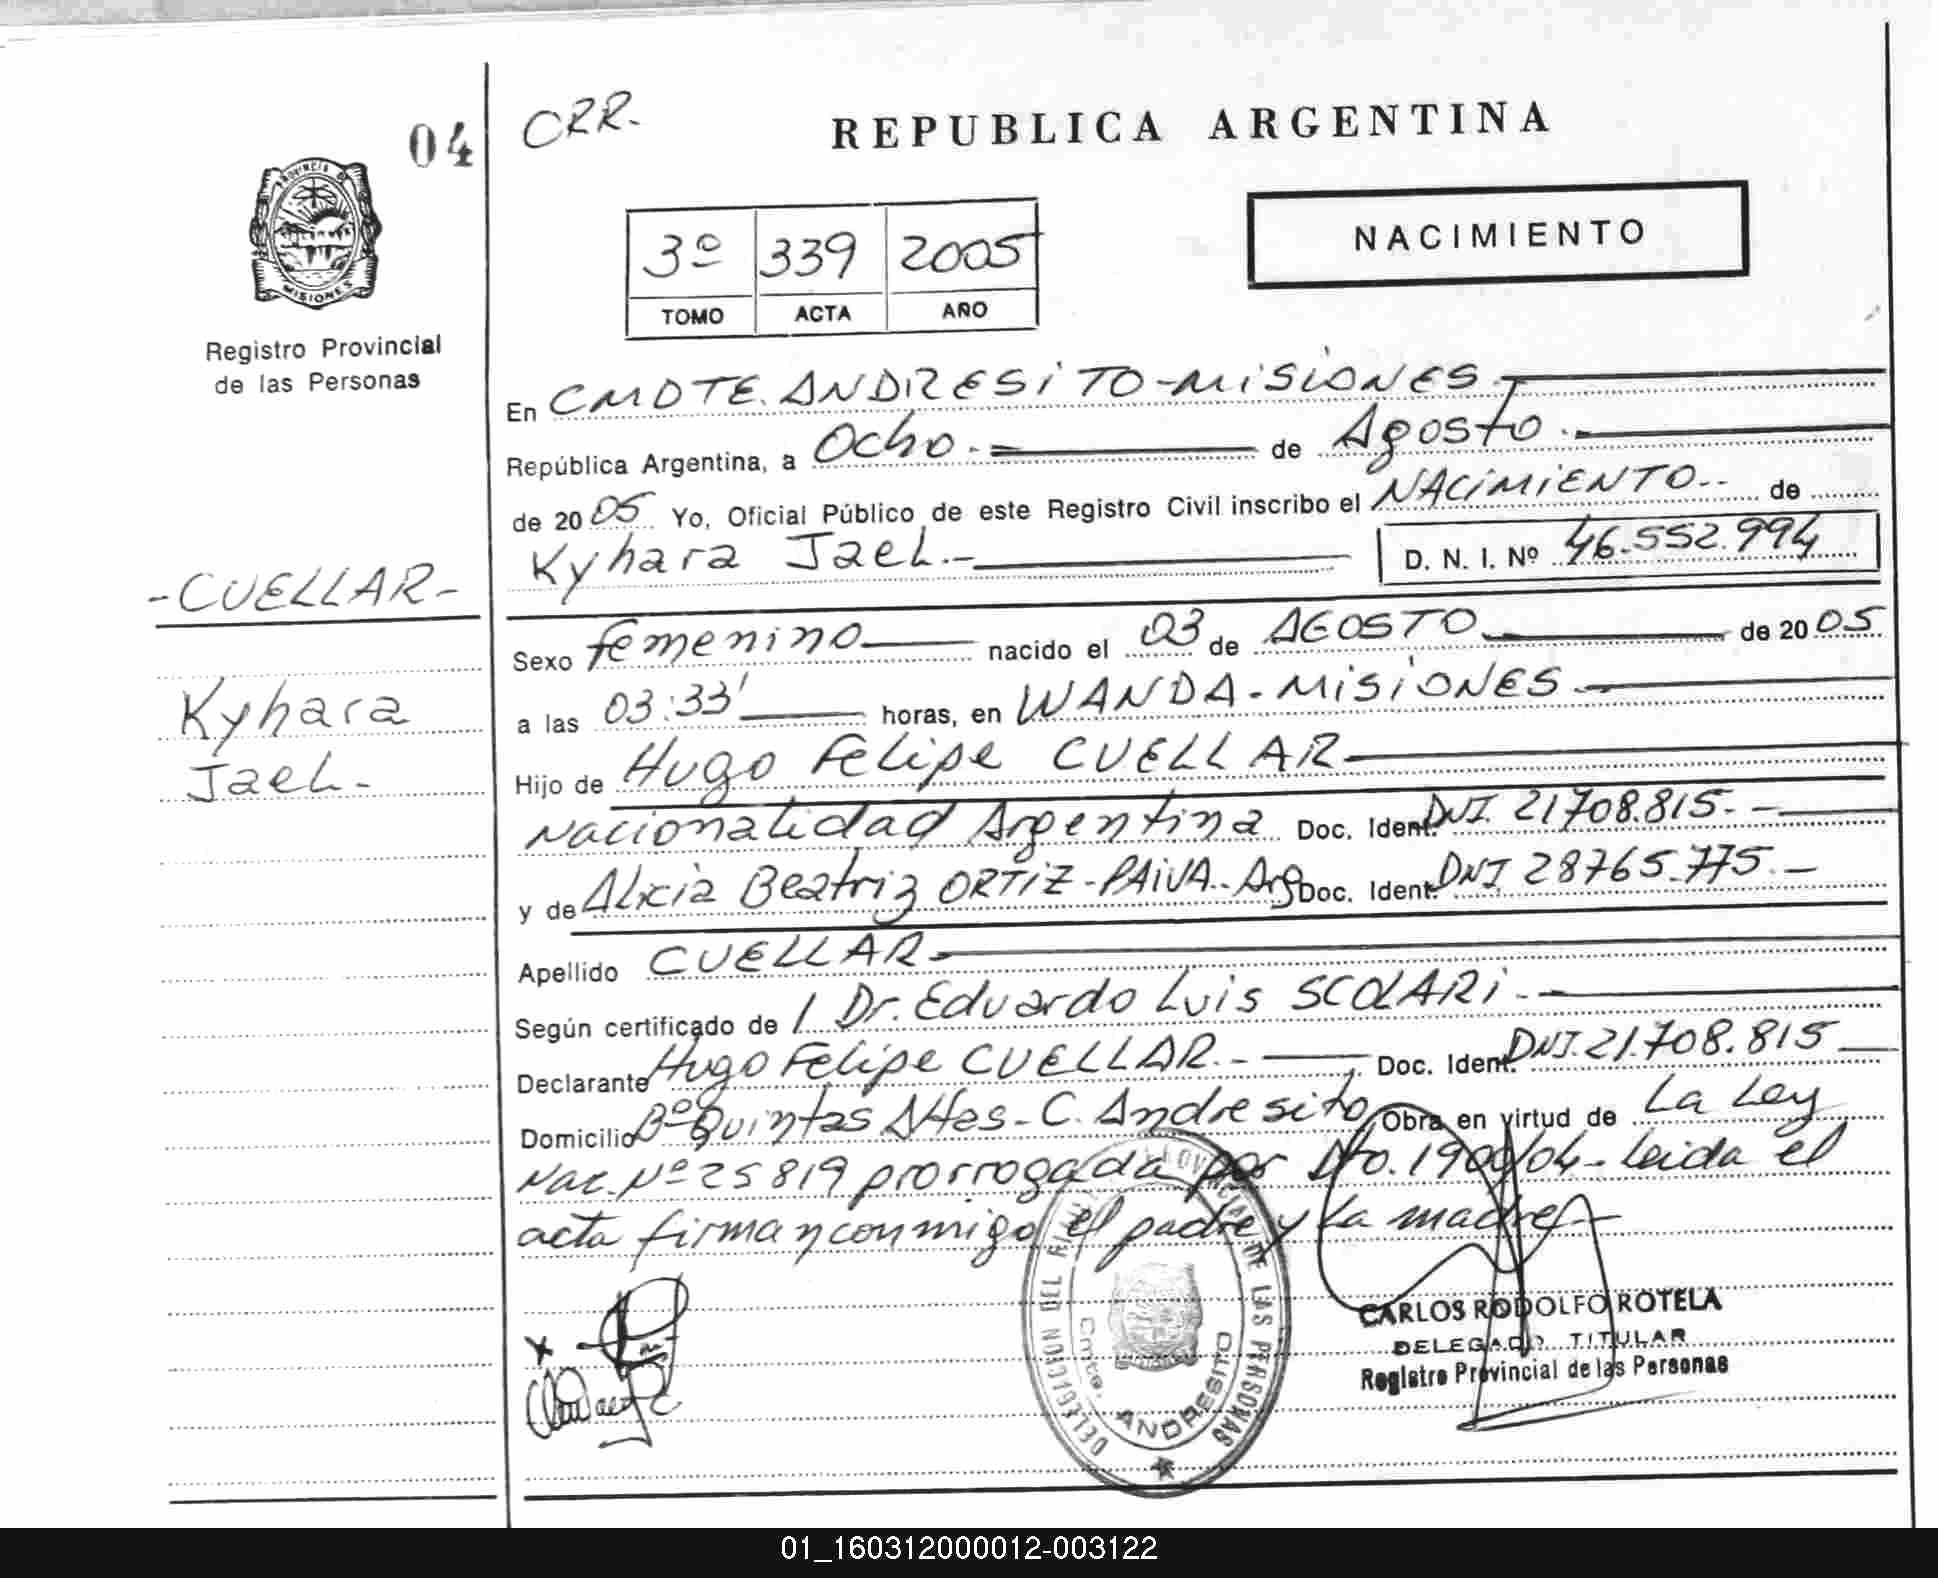 04
CRR.
REPUBLICA ARGENTINA
PROVINCIA D
MISIONES
Registro Provincial
de las Personas
3º 339 2005
TOMO ACTA AÑO
NACIMIENTO
En CMDTE. ANDRESITO-MISIONES
República Argentina, a Ocho.- de Agosto.-
de 2005 Yo, Oficial Público de este Registro Civil inscribo el NACIMIENTO.. de
Kyhara Jael.- D. N. I. Nº 46.552.994
-CUELLAR-
Kyhara
Jael-
Sexo femenino nacido el 03 de AGOSTO de 2005
a las 03:33' horas, en WANDA-MISIONES
Hijo de Hugo Felipe CUELLAR
Nacionalidad Argentina Doc. Ident. DNI 21708.815.-
y de Alicia Beatriz ORTIZ-PAIVA.. Arg Doc. Ident. DNI 28765.775.-
Apellido CUELLAR-
Según certificado de / Dr. Eduardo Luis SCOLARI.-
Declarante Hugo Felipe CUELLAR.- Doc. Ident. DNI.21.708.815
Domicilio Bº Quintas Altas-C. Andresito Obra en virtud de La Ley
Nac. Nº 25819 prorrogada por Dto. 1900/04-leida el
acta firman conmigo el padre y la madre-
DELEGACION DEL REGISTRO PROVINCIAL DE LAS PERSONAS
Cmte. ANDRESITO
CARLOS RODOLFO ROTELA
DELEGADO TITULAR
Registro Provincial de las Personas
01_160312000012-003122